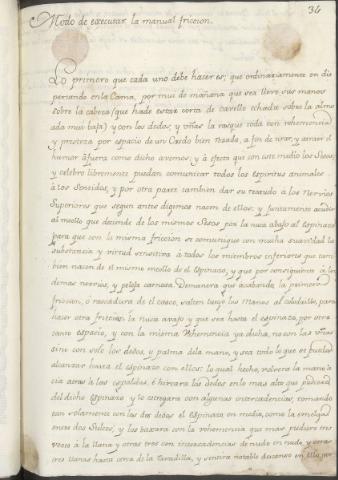 34
Modo de executar la manual friccion.
Lo primero que cada uno debe hacer es; que ordinariamente en dis
pertando en la Cama, por mui de mañana que sea lleve sus manos
sobre la cabeza (que ha de estar corta de cavello echada sobre la almo
ada mui baja) y con los dedos; y uñas la rasque toda con vehemencia
y presteza por espacio de un Credo bien rezado, a fin de tirar, y atraer el
humor afuera como dicho avemos; y à efecto que con este medio los Sesos,
y celebro libremente puedan comunicar todos los espiritus animales
à los Sentidos, y por otra parte tambien dar su recaudo à los Nervios
Superiores que segun antes digimos nacen de ellos; y juntamente acudir
al meollo que deciende de los mismos Sesos por la nuca abajo al espinazo
para que con la misma friccion se comunique con mucha suavidad la
substancia y virtud sensitiva à todos los miembros inferiores que tam
bien nacen de el mismo meollo de el Espinazo, y que por consiguiente à los
demas nervios, y
Demanera que acabada la primera
friccion, ò rascadura de el casco, salten luego las manos al colodrillo, para
hacer otra friccion la nuca avajo y que sea hasta el espinazo, por otro
tanto espacio, y con la misma Vehemencia ya dicha, no con las uñas
sino con solo los dedos, o palma de la mano, y sea todo lo que se pueda
alcanzar hacia el espinazo con ellos: lo qual hecho, volverà la mano à
cia atras à las espaldas, è hircarà los dedos en lo mas alto que pudiere
del dicho espinazo y le estregarà con algunas intercadencias, tomando
tan solamente con los dos dedos el espinazo en medio, como la emelga
entre dos Sulcos, y los bajarà con la vehemencia que mas pudiere tres
veces à la llana y otras tres con intercadencias de nudo en nudo y otras
tres llanas hasta cerca de la Ravadilla, y sentirà notable descanso en ello por